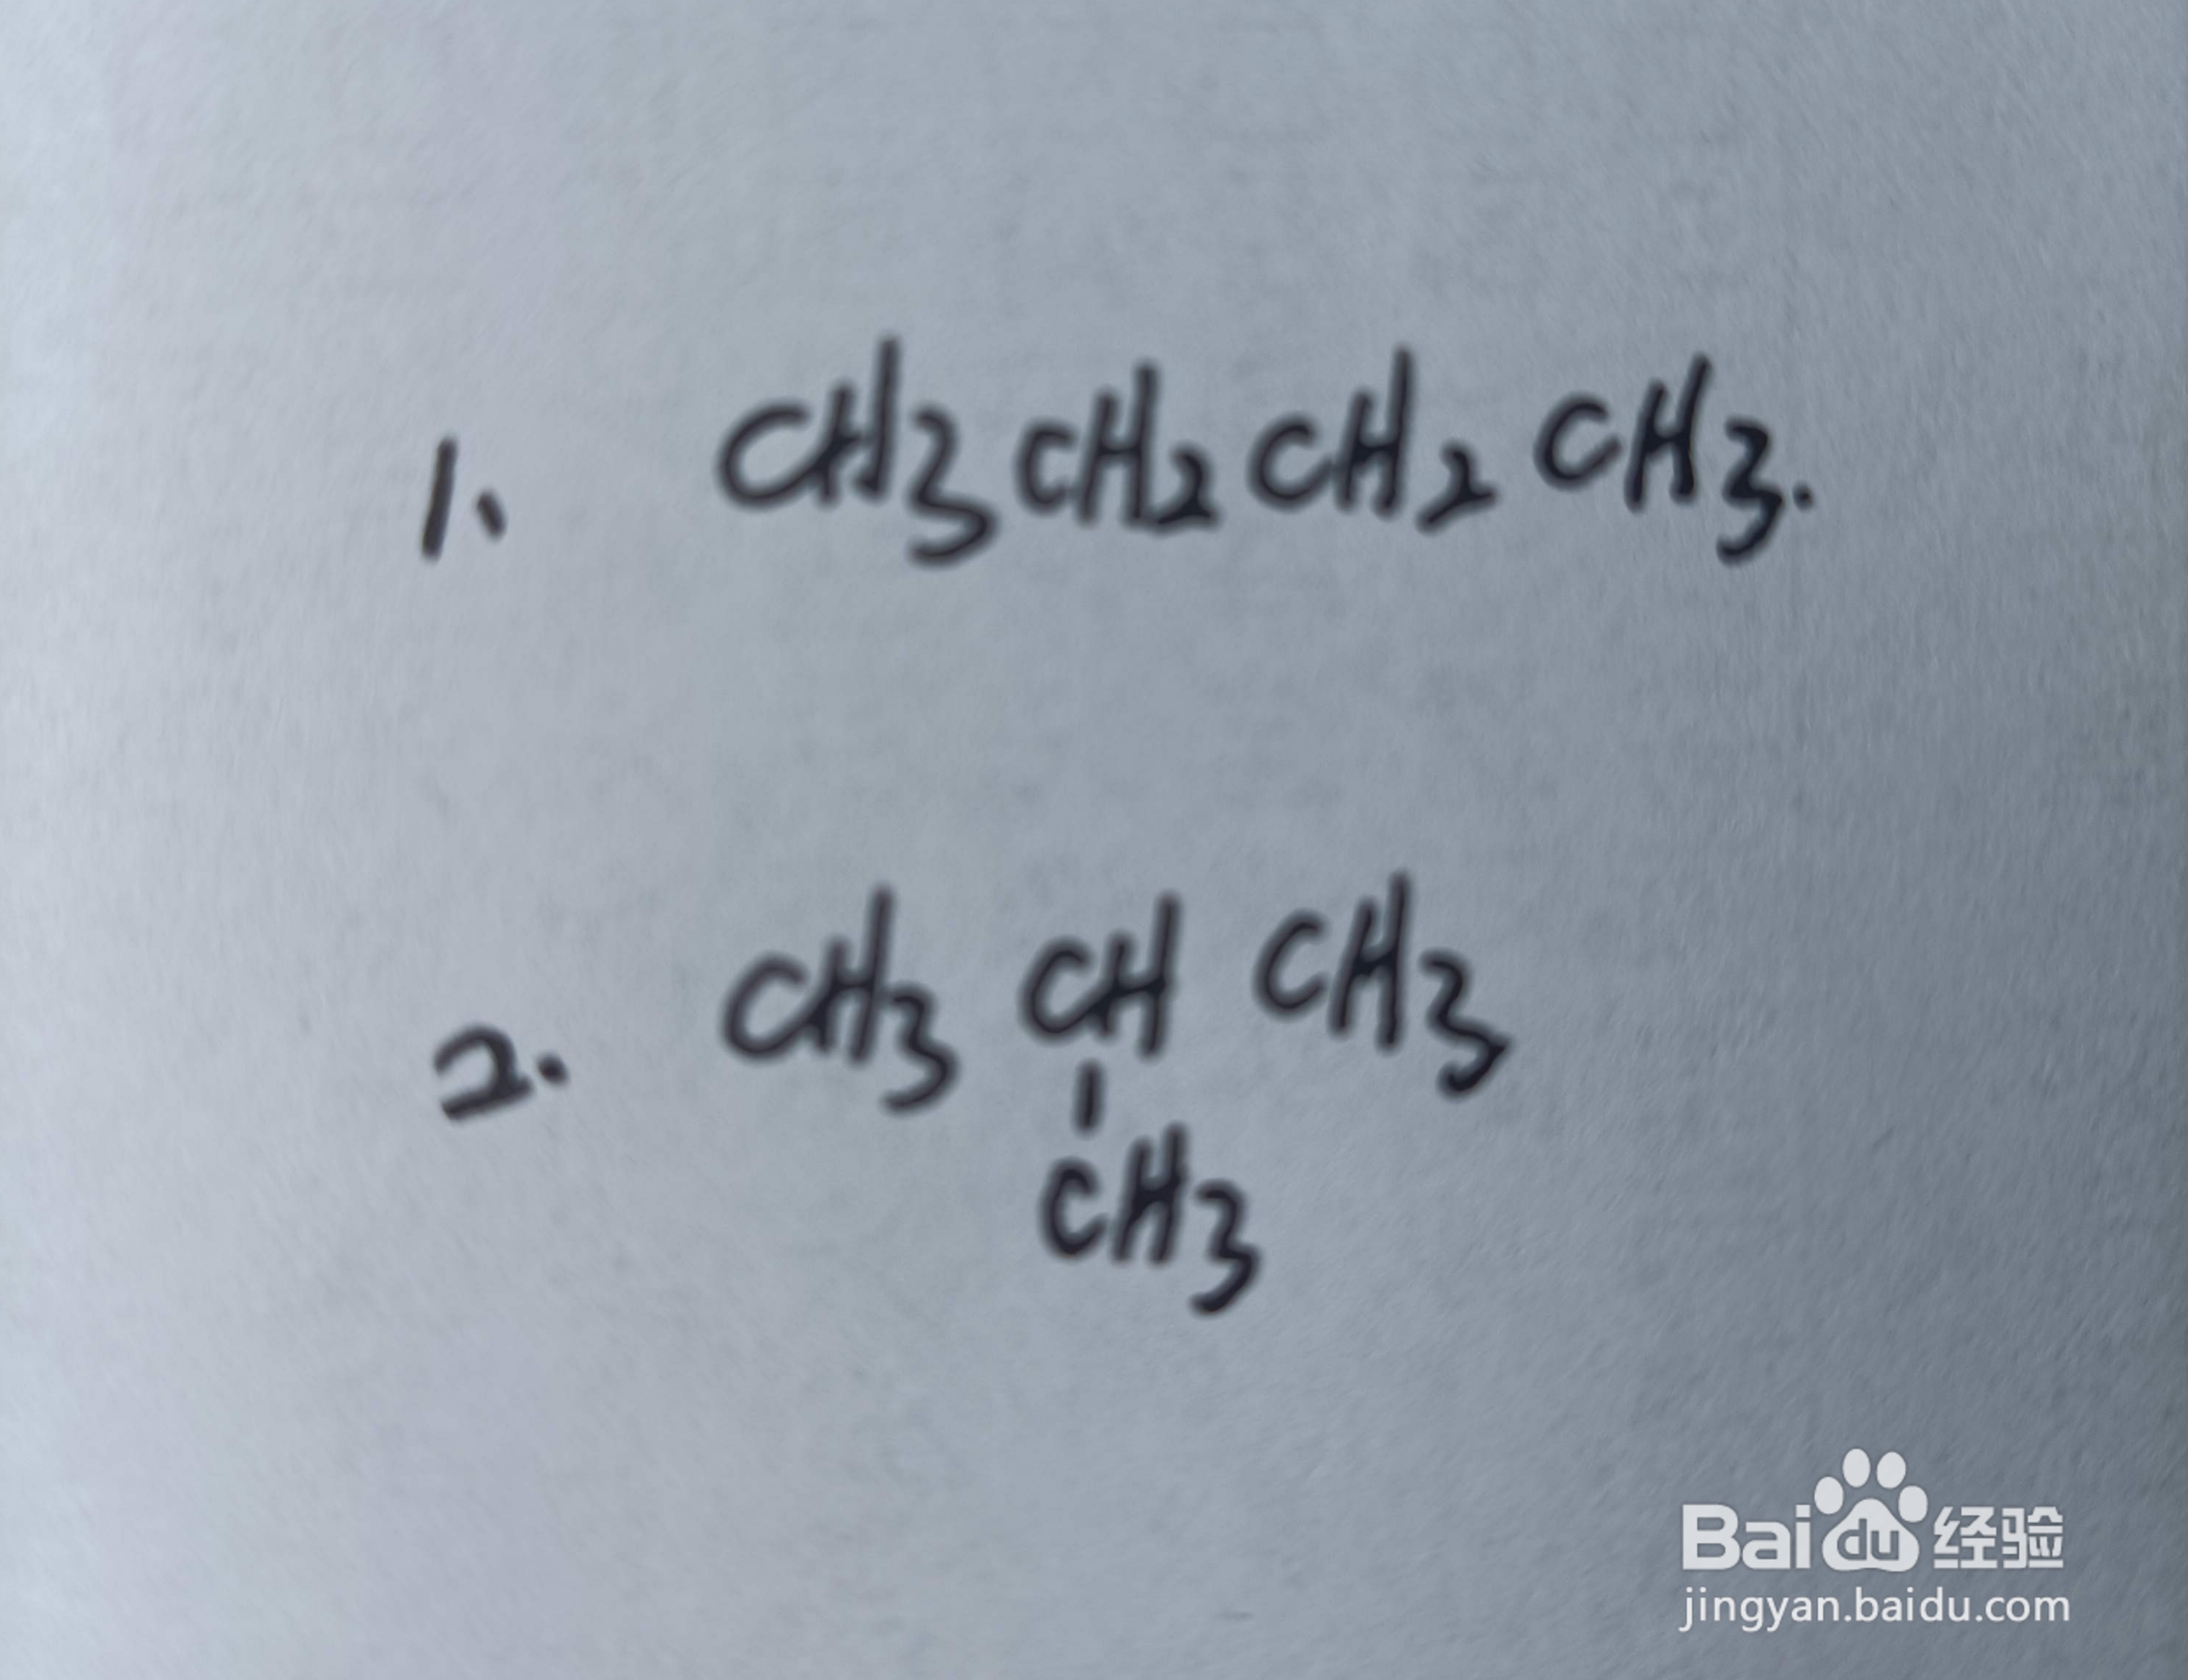 1. CH3CH2CH2CH3.
2. CH3 CH CH3
CH3
Baidu经验
jingyan.baidu.com